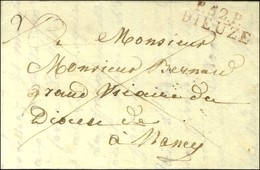 P.42.P.
DIEUZE
Monsieur
Monsieur Bernard
Grand Vicaire du
Diocese de
à Nancy